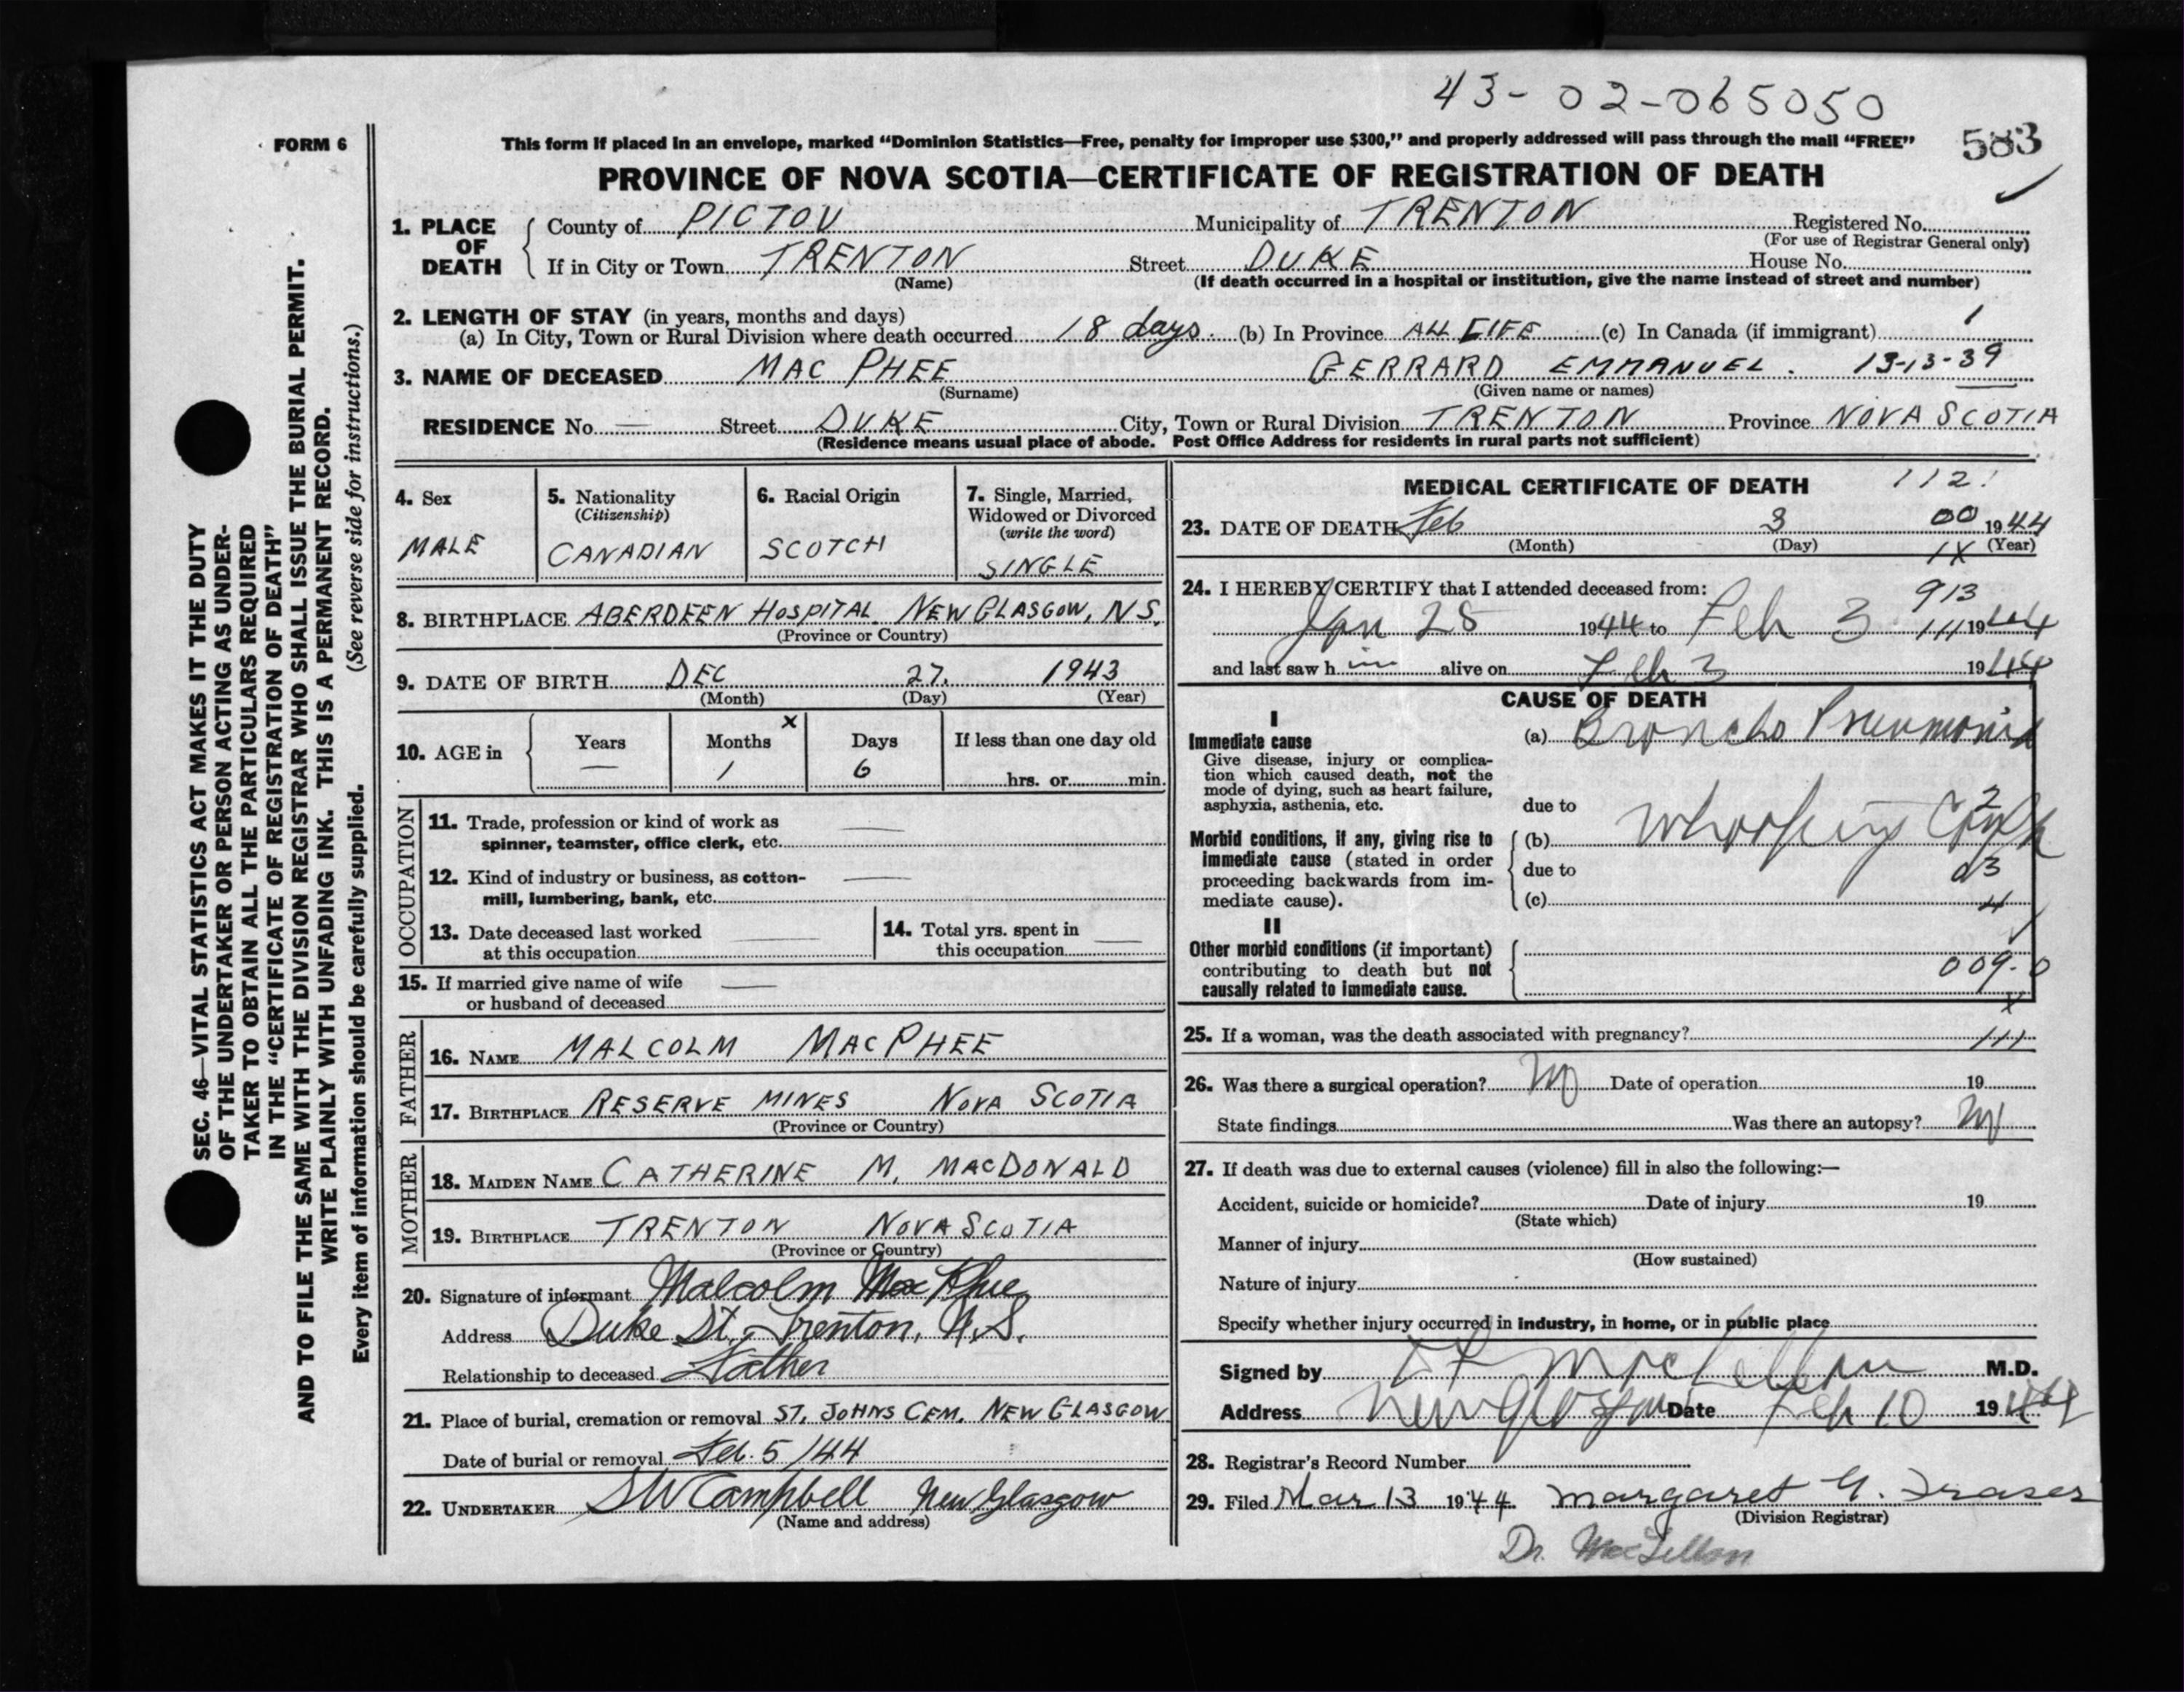 43-02-065050
FORM 6
This form if placed in an envelope, marked “Dominion Statistics—Free, penalty for improper use $300,” and properly addressed will pass through the mail “FREE”
583
PROVINCE OF NOVA SCOTIA—CERTIFICATE OF REGISTRATION OF DEATH
1. PLACE OF DEATH
County of PICTOU Municipality of TRENTON Registered No.
(For use of Registrar General only)
If in City or Town TRENTON Street DUKE House No.
(Name) (If death occurred in a hospital or institution, give the name instead of street and number)
2. LENGTH OF STAY (in years, months and days)
(a) In City, Town or Rural Division where death occurred 18 days. (b) In Province ALL LIFE (c) In Canada (if immigrant) 1
3. NAME OF DECEASED MAC PHEE GERRARD EMMANUEL. 13-13-39
(Surname) (Given name or names)
RESIDENCE No. — Street DUKE City, Town or Rural Division TRENTON Province NOVA SCOTIA
(Residence means usual place of abode. Post Office Address for residents in rural parts not sufficient)
4. Sex
MALE
5. Nationality
(Citizenship)
CANADIAN
6. Racial Origin
SCOTCH
7. Single, Married,
Widowed or Divorced
(write the word)
SINGLE
8. BIRTHPLACE ABERDEEN HOSPITAL. NEW GLASGOW, N.S.
(Province or Country)
9. DATE OF BIRTH DEC 27. 1943
(Month) (Day) (Year)
10. AGE in
Years —
Months x 1
Days 6
If less than one day old
hrs. or min.
OCCUPATION
11. Trade, profession or kind of work as —
spinner, teamster, office clerk, etc.
12. Kind of industry or business, as cotton- —
mill, lumbering, bank, etc.
13. Date deceased last worked —
at this occupation
14. Total yrs. spent in —
this occupation
15. If married give name of wife —
or husband of deceased
FATHER
16. NAME MALCOLM MACPHEE
17. BIRTHPLACE RESERVE MINES NOVA SCOTIA
(Province or Country)
MOTHER
18. MAIDEN NAME CATHERINE M. MACDONALD
19. BIRTHPLACE TRENTON NOVA SCOTIA
(Province or Country)
20. Signature of informant Malcolm MacPhee
Address Duke St., Trenton, N.S.
Relationship to deceased Father
21. Place of burial, cremation or removal ST. JOHNS CEM. NEW GLASGOW
Date of burial or removal Feb. 5/44
22. UNDERTAKER SW Campbell New Glasgow
(Name and address)
MEDICAL CERTIFICATE OF DEATH 112.
23. DATE OF DEATH Feb 3 00 1944
(Month) (Day) 1X (Year)
24. I HEREBY CERTIFY that I attended deceased from:
913
Jan 28 1944 to Feb 3 111 1944
and last saw h im alive on Feb 3 1944
CAUSE OF DEATH
I
Immediate cause (a) Broncho Pneumonia
Give disease, injury or complica-
tion which caused death, not the
mode of dying, such as heart failure,
asphyxia, asthenia, etc. due to
2
Morbid conditions, if any, giving rise to (b) Whooping Cough
immediate cause (stated in order
proceeding backwards from im- due to
mediate cause). (c) 4
II
Other morbid conditions (if important)
contributing to death but not 009-0
causally related to immediate cause.
x
25. If a woman, was the death associated with pregnancy? 111
26. Was there a surgical operation? No Date of operation 19
State findings Was there an autopsy? No
27. If death was due to external causes (violence) fill in also the following:—
Accident, suicide or homicide? Date of injury 19
(State which)
Manner of injury
(How sustained)
Nature of injury
Specify whether injury occurred in industry, in home, or in public place
Signed by MacLellan M.D.
Address New Glasgow Date Feb 10 1944
28. Registrar's Record Number
29. Filed Mar 13 1944 Margaret G. Fraser
(Division Registrar)
Dr. MacLellan
SEC. 46—VITAL STATISTICS ACT MAKES IT THE DUTY
OF THE UNDERTAKER OR PERSON ACTING AS UNDER-
TAKER TO OBTAIN ALL THE PARTICULARS REQUIRED
IN THE “CERTIFICATE OF REGISTRATION OF DEATH”
AND TO FILE THE SAME WITH THE DIVISION REGISTRAR WHO SHALL ISSUE THE BURIAL PERMIT.
WRITE PLAINLY WITH UNFADING INK. THIS IS A PERMANENT RECORD.
Every item of information should be carefully supplied. (See reverse side for instructions.)